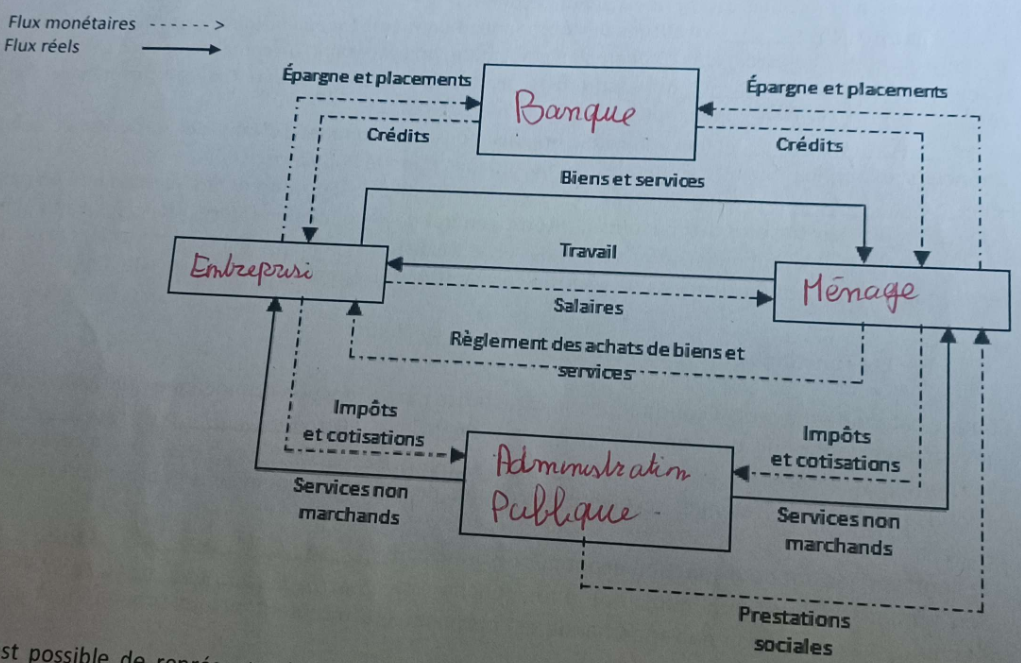 Flux monétaires
Flux réels
Épargne et placements
Épargne et placements
Banque
Crédits
Crédits
Biens et services
Travail
Entreprisi
Ménage
Salaires
Règlement des achats de biens et
services
Impôts
et cotisations
Impôts
et cotisations
Administration
Publique
Services non
marchands
Services non
marchands
Prestations
sociales
st possible de